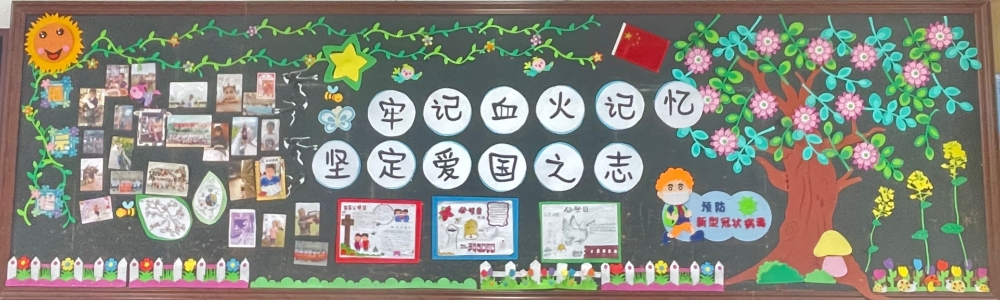 牢记血火记忆
坚定爱国之志
预防
新型冠状病毒
公祭日